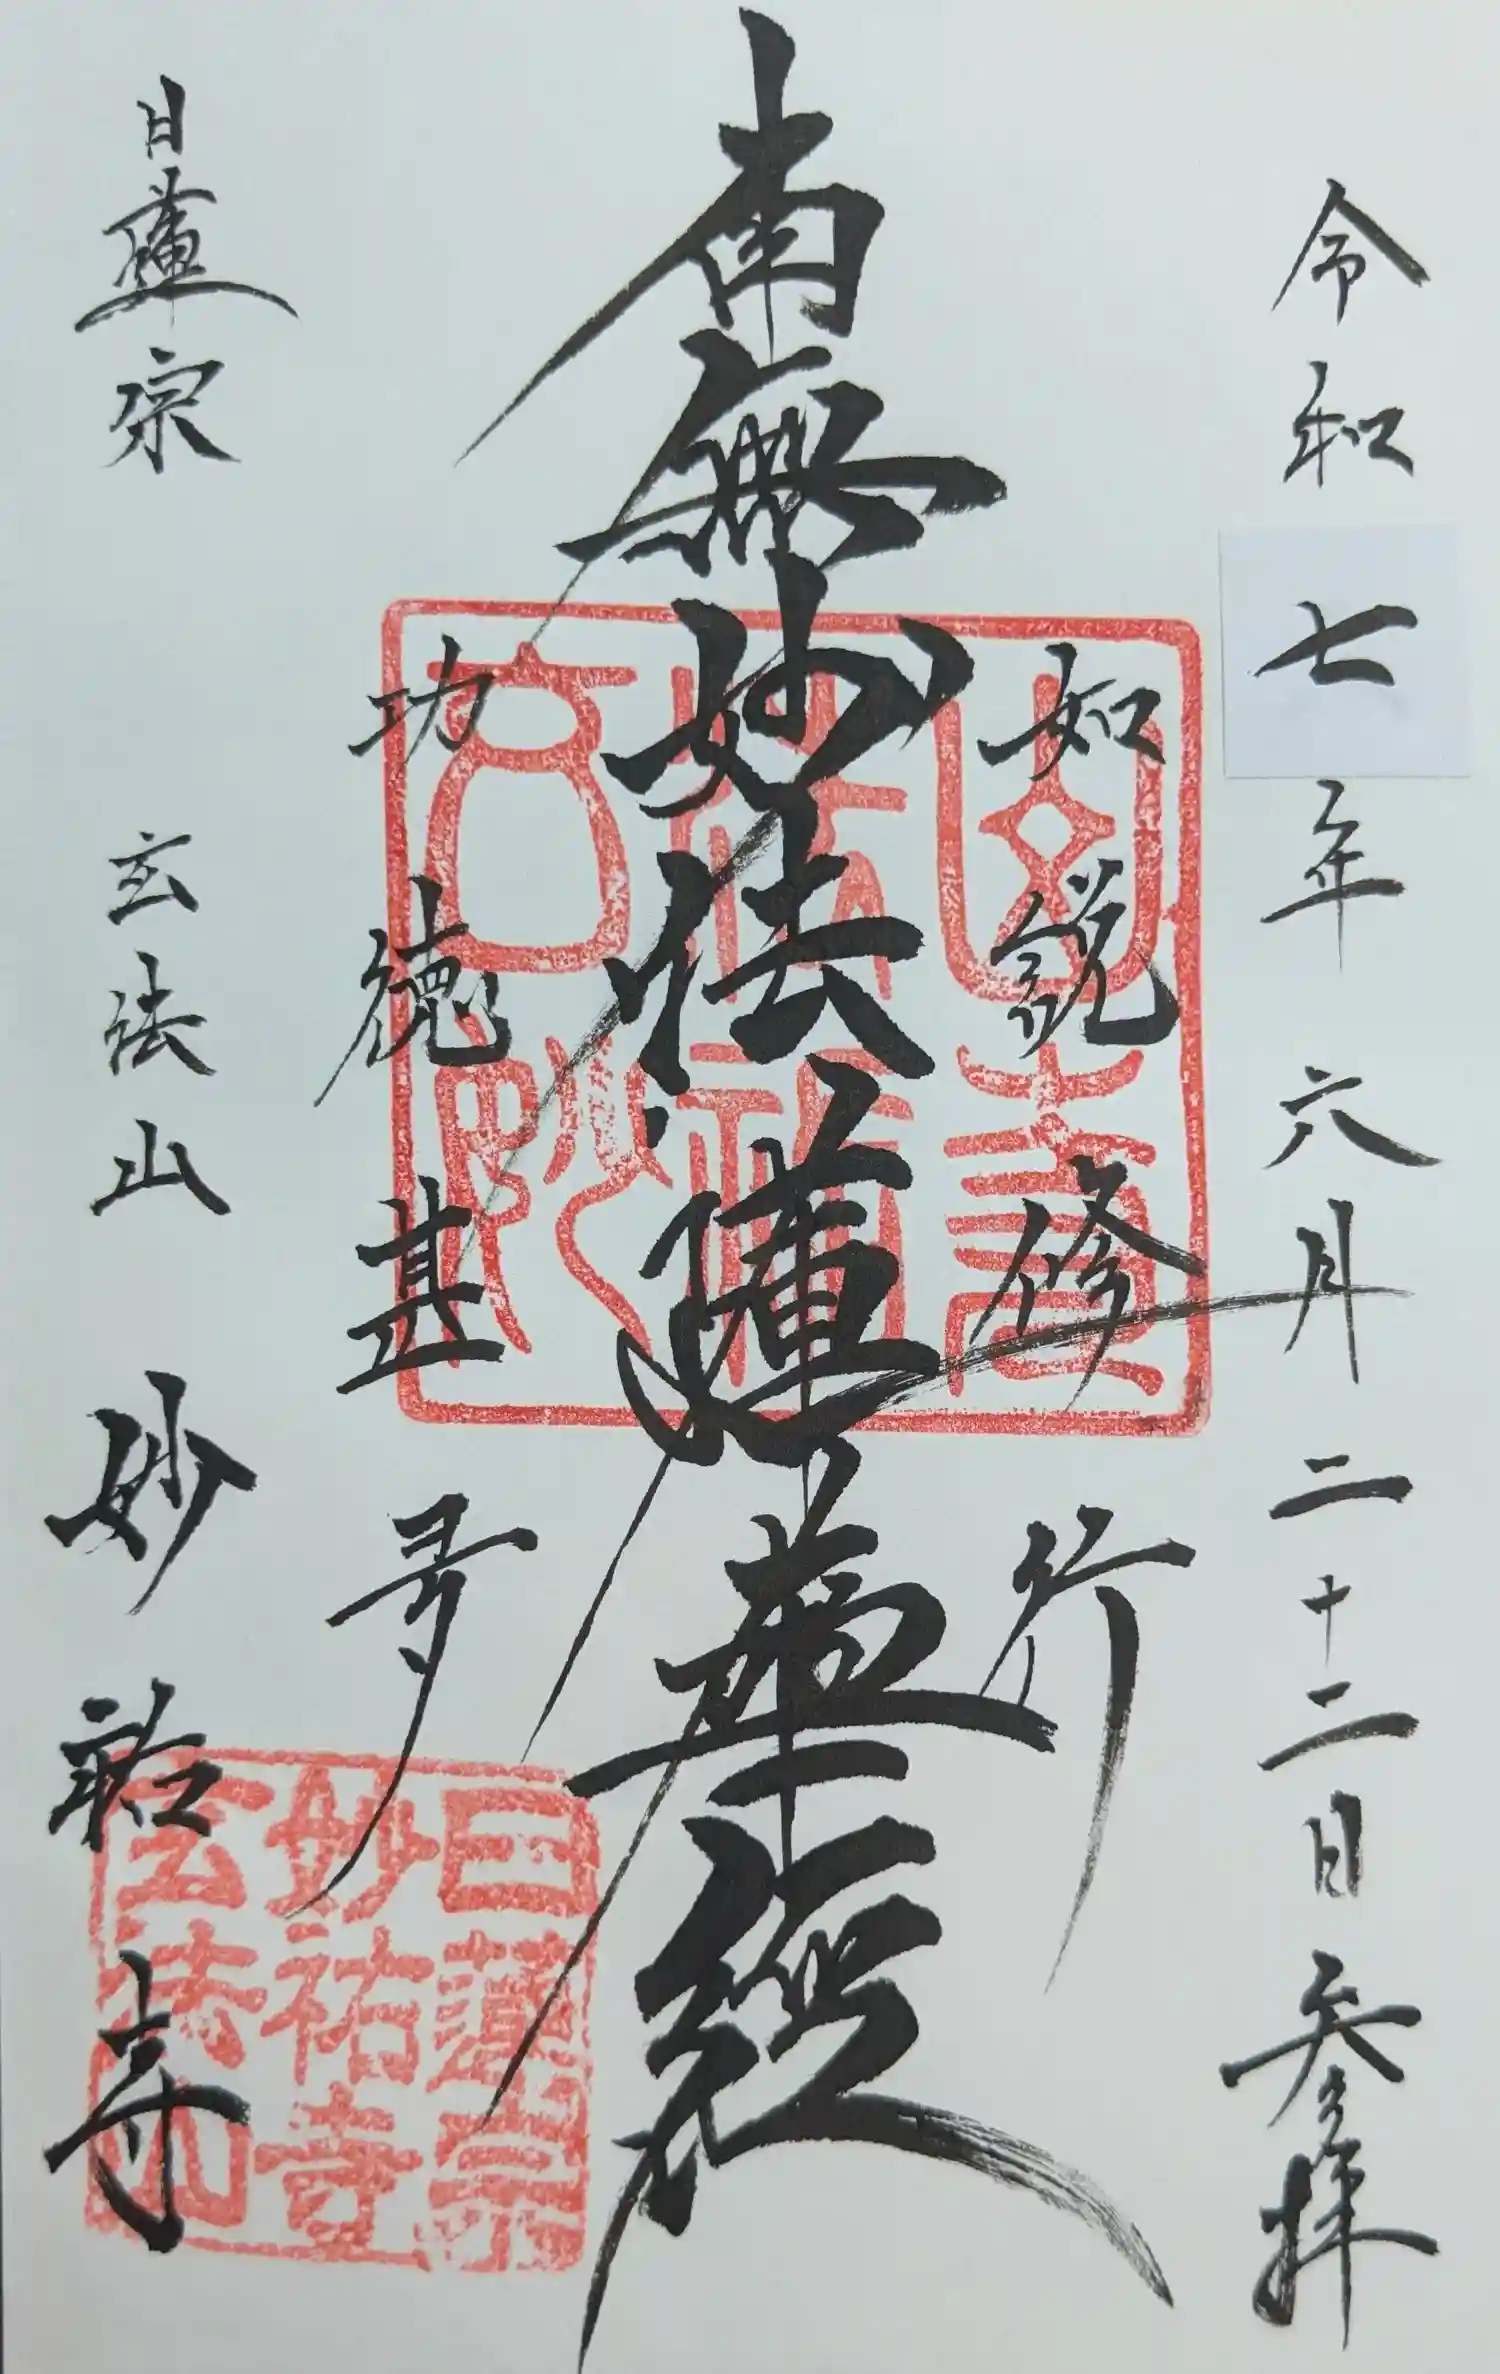 令和七年六月二十二日参拝
如説修行
南無妙法蓮華經
功徳甚多
日蓮宗
玄法山 妙祐寺
日蓮宗
妙祐寺
玄法山